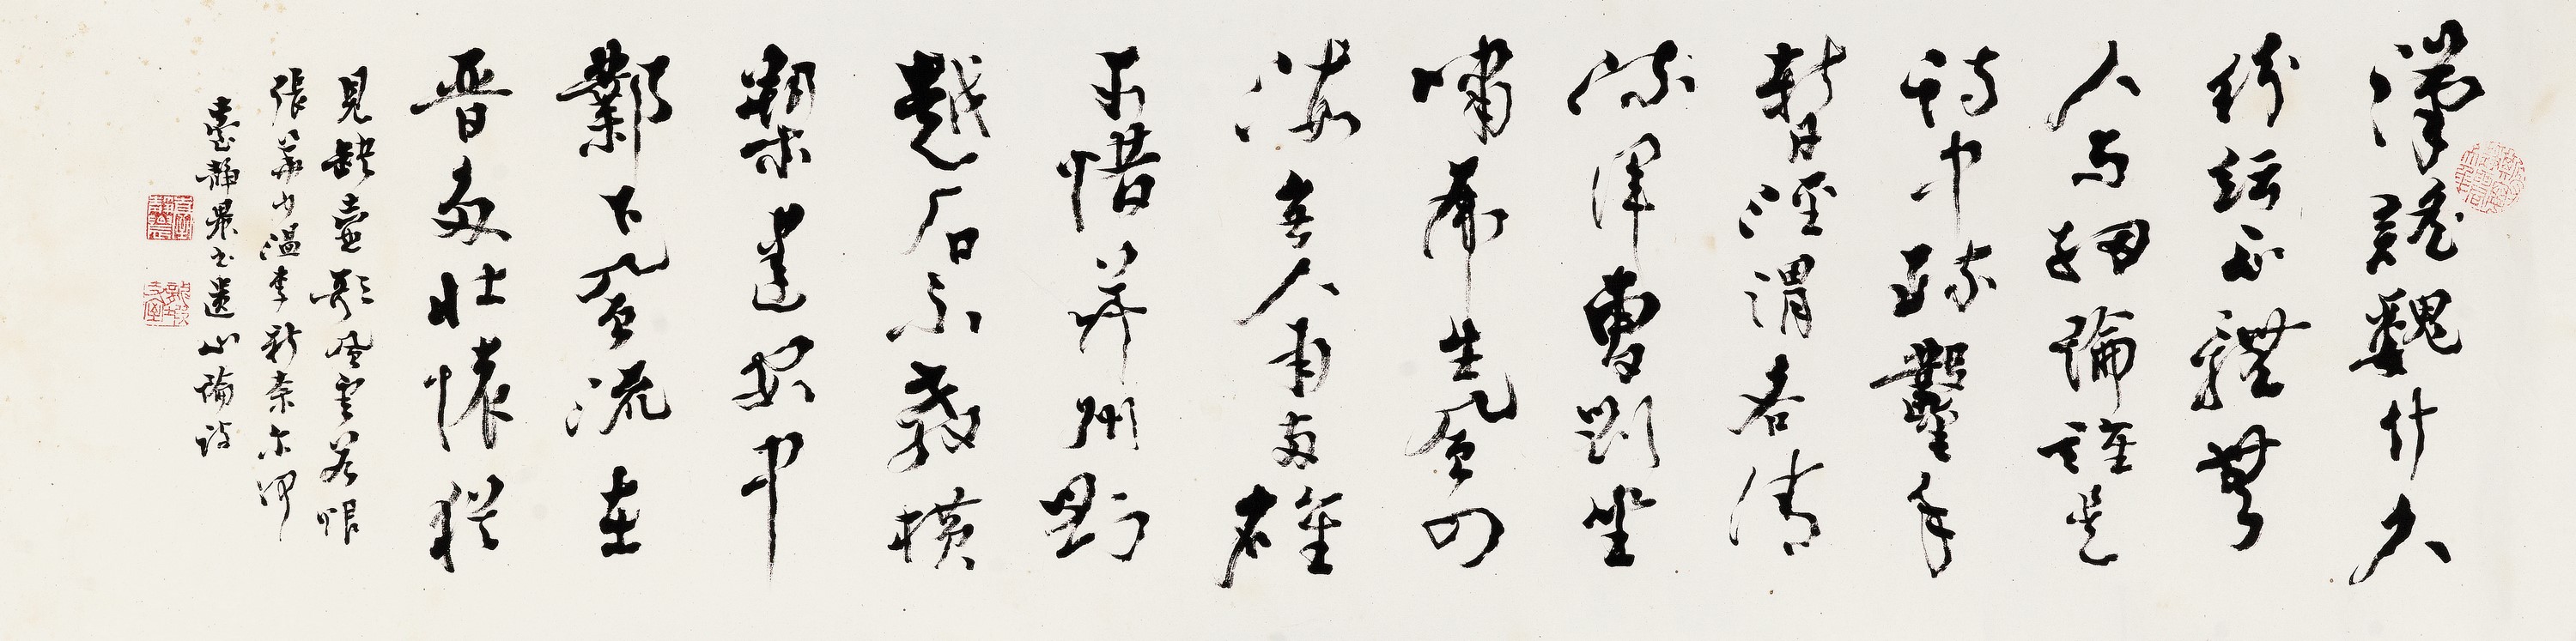 漢謠魏什久
紛紜正體無
人与細論誰是
詩中疏鑿手
暫涇渭各清
渾曹劉坐
嘯虎生風四
海無人角兩雄
可惜并州劉
越石不教橫
槊建安中
鄴下風流在
晉多壯懷猶
見缺壺歌風雲若恨
張華少溫李新奈尔何
臺靜農書遺山論詩